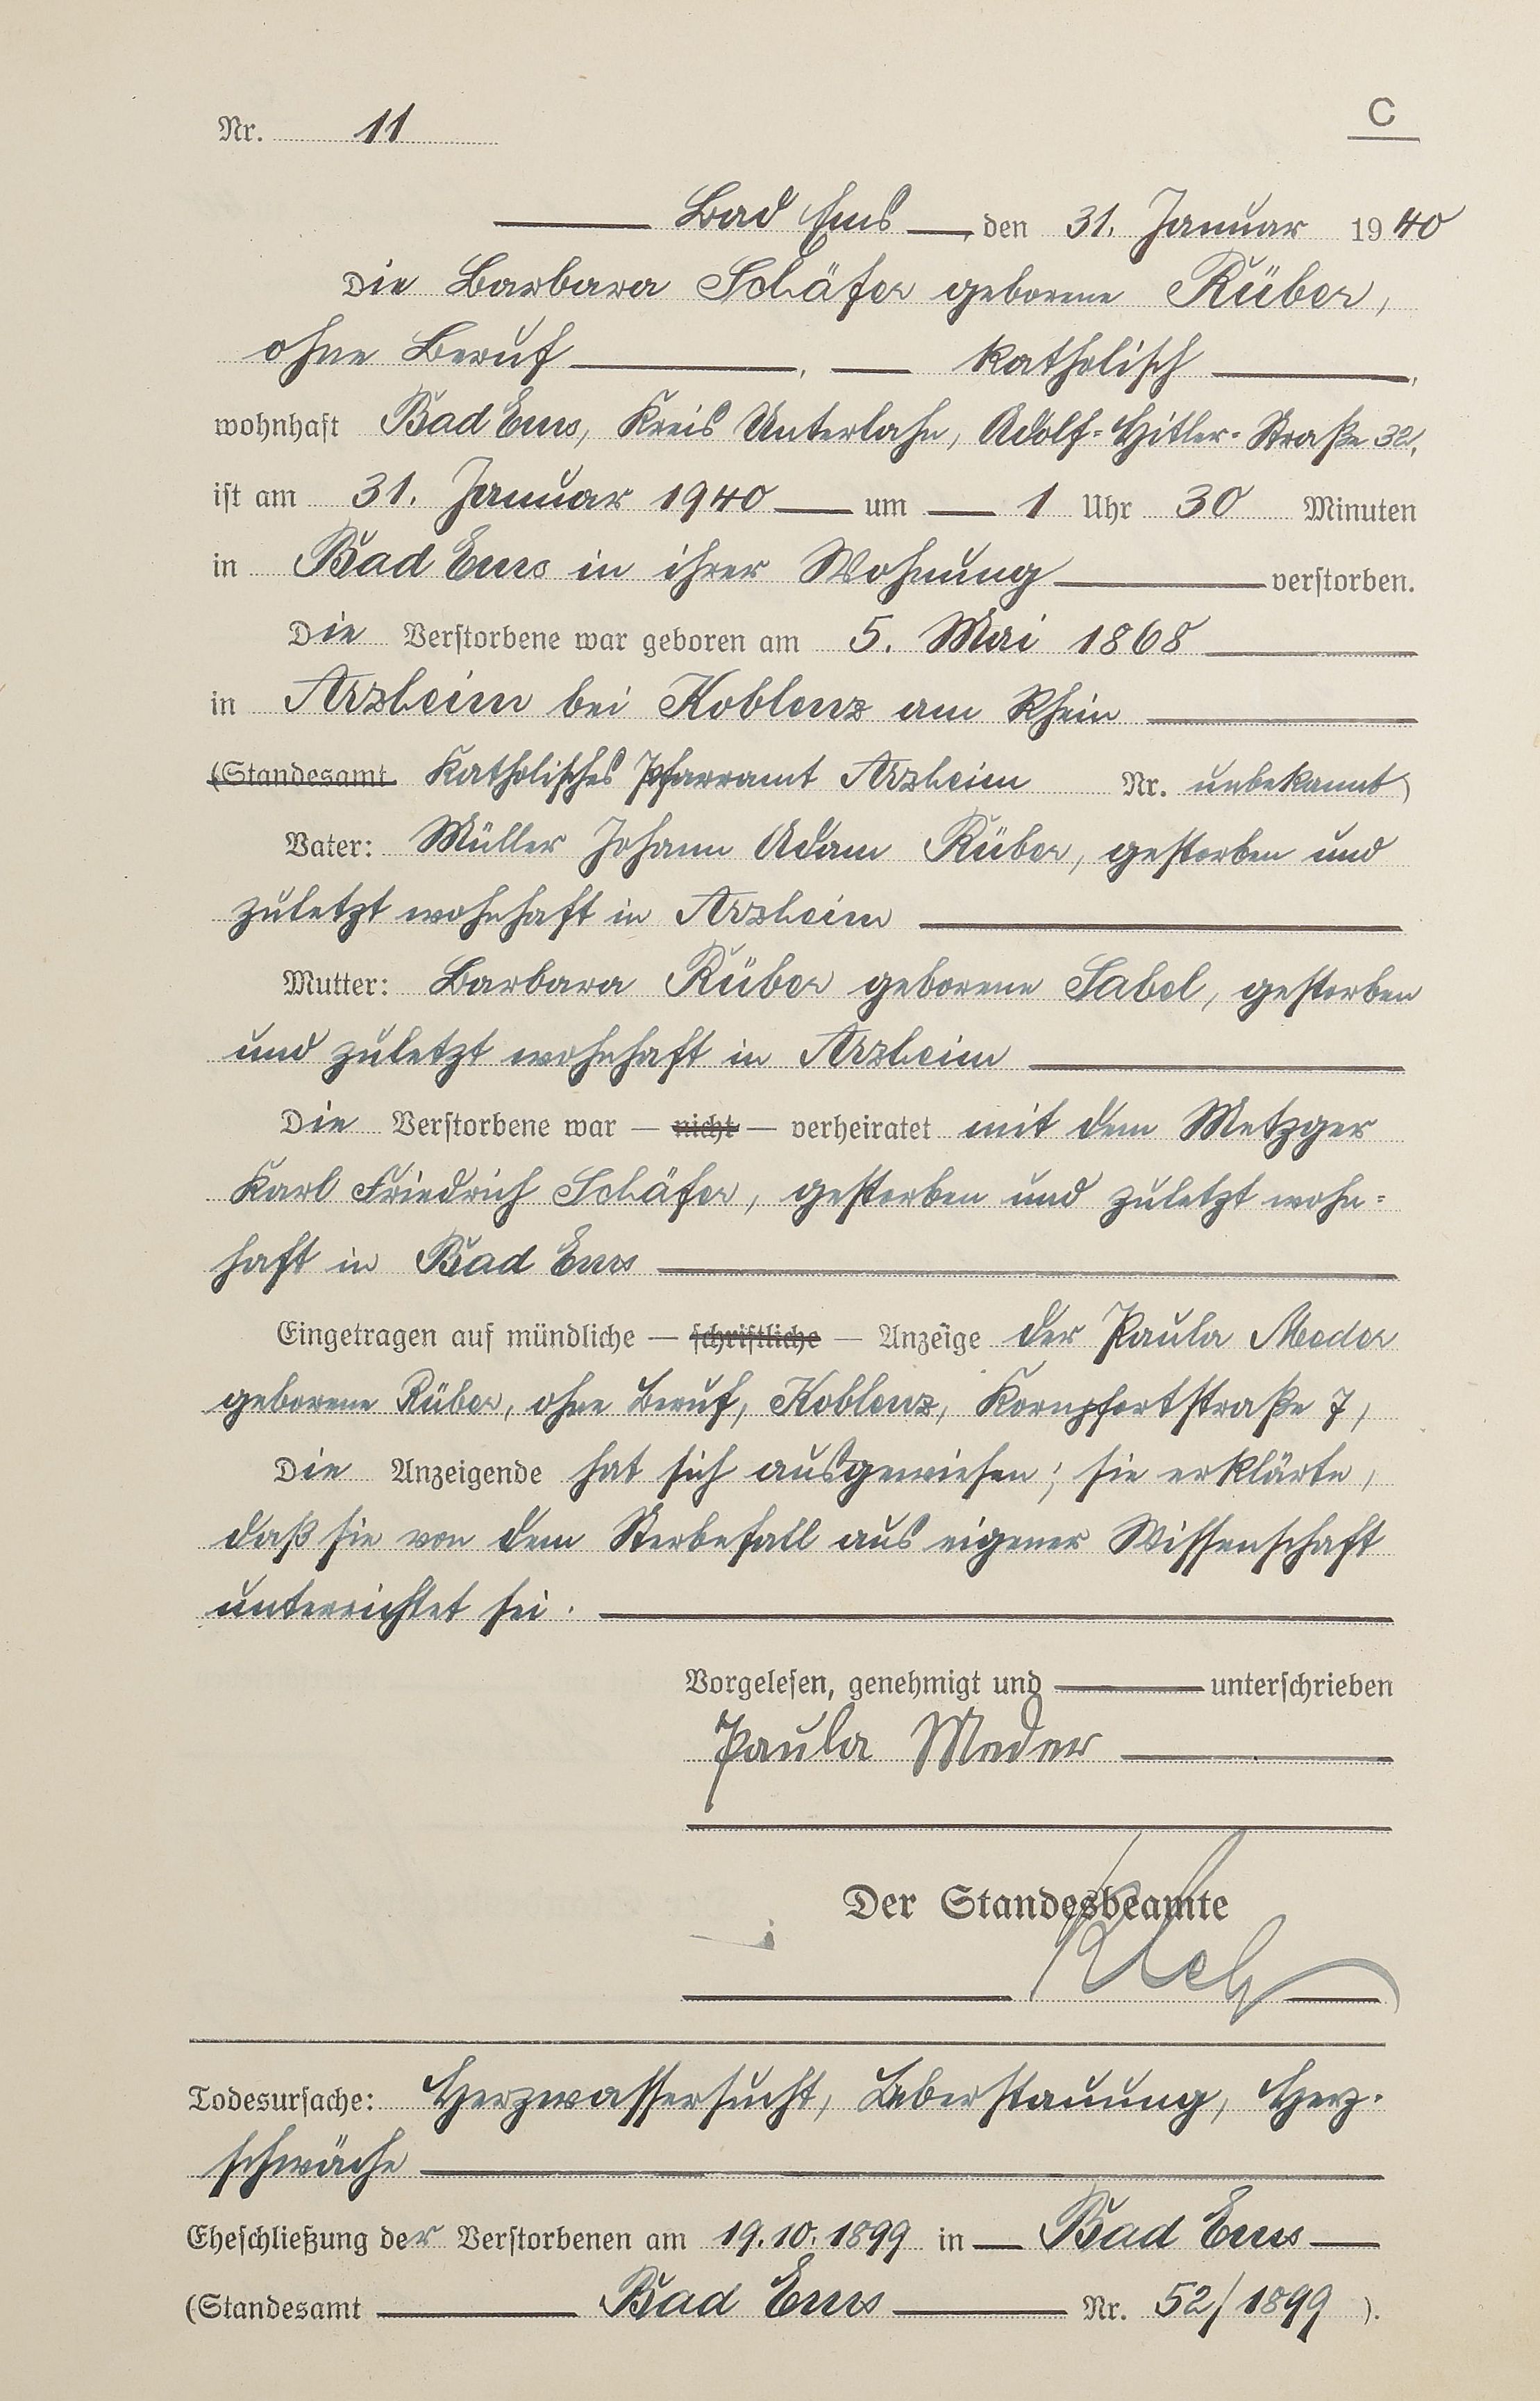 Nr. 11
C
Bad Ems, den 31. Januar 1940
Die Barbara Schäfer geborene Rüber,
ohne Beruf, katholisch,
wohnhaft Bad Ems, Kreis Unterlahn, Adolf-Hitler-Straße 32,
ist am 31. Januar 1940 um 1 Uhr 30 Minuten
in Bad Ems in ihrer Wohnung verstorben.
Die Verstorbene war geboren am 5. Mai 1868
in Arzheim bei Koblenz am Rhein
(Standesamt Katholisches Pfarramt Arzheim Nr. unbekannt)
Vater: Müller Johann Adam Rüber, gestorben und
zuletzt wohnhaft in Arzheim
Mutter: Barbara Rüber geborene Sabel, gestorben
und zuletzt wohnhaft in Arzheim
Die Verstorbene war — nicht — verheiratet mit dem Metzger
Karl Friedrich Schäfer, gestorben und zuletzt wohn=
haft in Bad Ems
Eingetragen auf mündliche — schriftliche — Anzeige der Paula Meder
geborene Rüber, ohne Beruf, Koblenz, Kornpfortstraße 7,
Die Anzeigende hat sich ausgewiesen; sie erklärte,
daß sie von dem Sterbefall aus eigener Wissenschaft
unterrichtet sei.
Vorgelesen, genehmigt und unterschrieben
Paula Meder
Der Standesbeamte
Todesursache: Herzwassersucht, Leberstauung, Herz-
schwäche
Eheschließung der Verstorbenen am 19.10.1899 in Bad Ems
(Standesamt Bad Ems Nr. 52/1899).